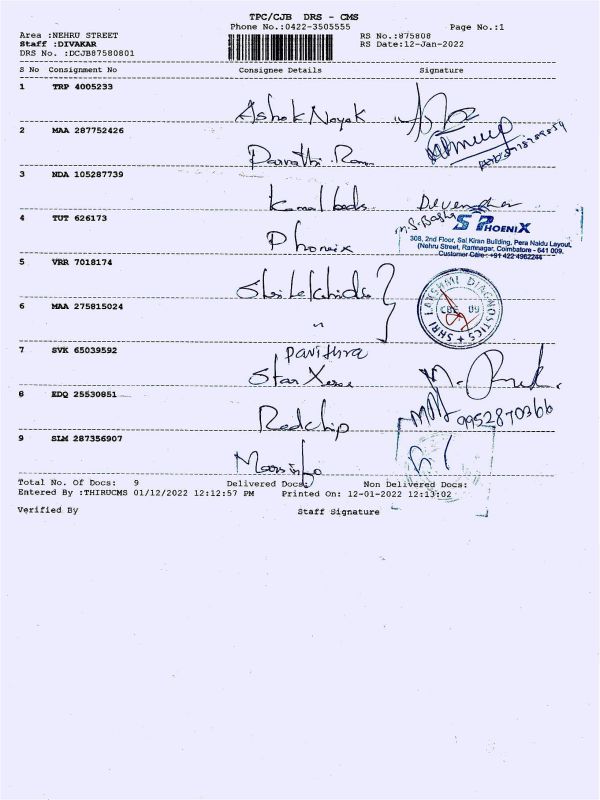 TPC/CJB DRS - CMS
Phone No.:0422-3505555 Page No.:1
Area :NEHRU STREET RS No.:875808
Staff :DIVAKAR RS Date:12-Jan-2022
DRS No. :DCJB87580801
S No Consignment No Consignee Details Signature
1 TRP 4005233
Ashok Nayak
2 MAA 287752426
Parvathi Ram
3 NDA 105287739
Kamal beds Devendher
4 TUT 626173 M.S. Basha
Phoneix S PHOENIX
308, 2nd Floor, Sai Kiran Building, Pera Naidu Layout,
(Nehru Street, Ramnagar, Coimbatore - 641 009.
Customer Care : +91 422 4962244
5 VRR 7018174
SHRI LAKSHMI DIAGNOSTICS
CBE 09
6 MAA 275815024
"
7 SVK 65039592
Pavithra
Star Xerox
8 EDQ 25530851
Redchip 9952870366
9 SLM 287356907
Total No. Of Docs: 9 Delivered Docs: Non Delivered Docs:
Entered By :THIRUCMS 01/12/2022 12:12:57 PM Printed On: 12-01-2022 12:13:02
Verified By Staff Signature